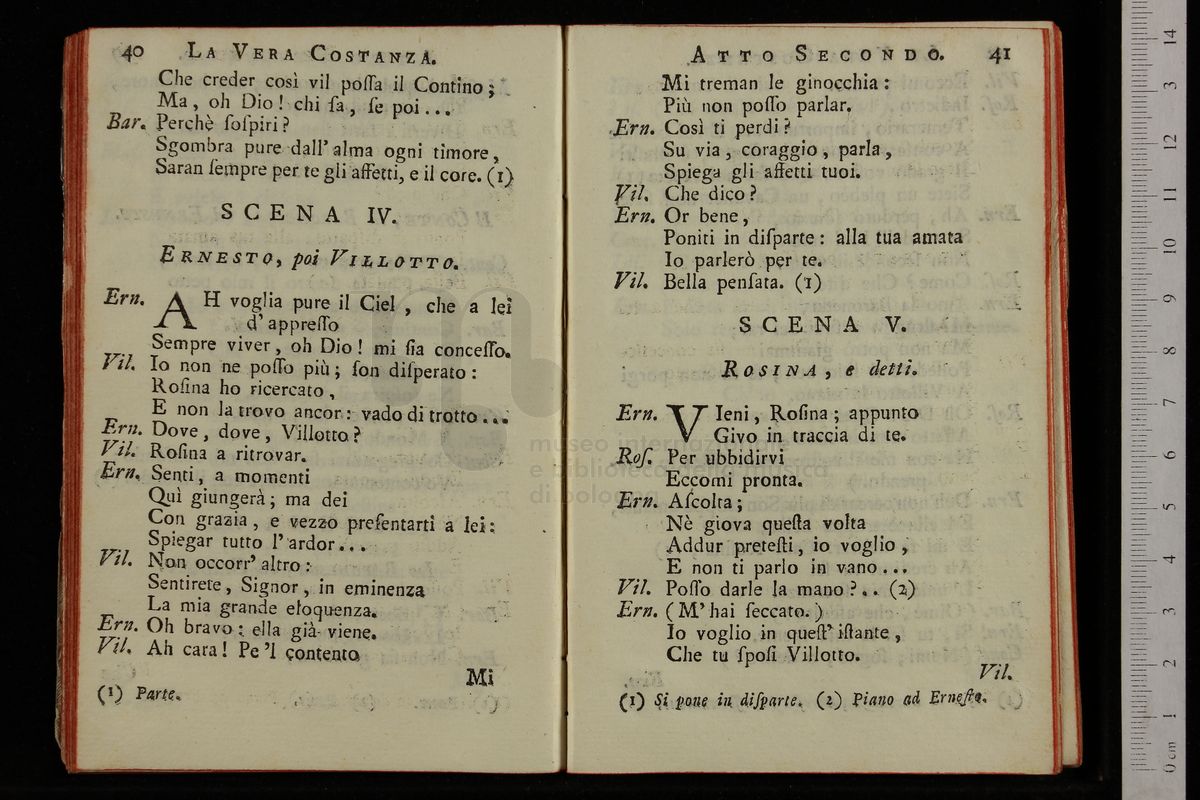 40 LA VERA COSTANZA.
Che creder così vil poſſa il Contino;
Ma, oh Dio! chi ſa, ſe poi...
Bar. Perchè ſoſpiri?
Sgombra pure dall' alma ogni timore,
Saran ſempre per te gli affetti, e il core. (1)
SCENA IV.
ERNESTO, poi VILLOTTO.
Ern. AH voglia pure il Ciel, che a lei
d' appreſſo
Sempre viver, oh Dio! mi ſia conceſſo.
Vil. Io non ne poſſo più; ſon diſperato:
Roſina ho ricercato,
E non la trovo ancor: vado di trotto...
Ern. Dove, dove, Villotto?
Vil. Roſina a ritrovar.
Ern. Senti, a momenti
Quì giungerà; ma dei
Con grazia, e vezzo preſentarti a lei:
Spiegar tutto l' ardor...
Vil. Non occorr' altro:
Sentirete, Signor, in eminenza
La mia grande eloquenza.
Ern. Oh bravo: ella già viene.
Vil. Ah cara! Pe 'l contento
Mi
(1) Parte.
ATTO SECONDO. 41
Mi treman le ginocchia:
Più non poſſo parlar.
Ern. Così ti perdi?
Su via, coraggio, parla,
Spiega gli affetti tuoi.
Vil. Che dico?
Ern. Or bene,
Poniti in diſparte: alla tua amata
Io parlerò per te.
Vil. Bella penſata. (1)
SCENA V.
ROSINA, e detti.
Ern. VIeni, Roſina; appunto
Givo in traccia di te.
Roſ. Per ubbidirvi
Eccomi pronta.
Ern. Aſcolta;
Nè giova queſta volta
Addur preteſti, io voglio,
E non ti parlo in vano...
Vil. Poſſo darle la mano?.. (2)
Ern. (M' hai ſeccato.)
Io voglio in queſt' iſtante,
Che tu ſpoſi Villotto.
Vil.
(1) Si pone in diſparte. (2) Piano ad Erneſto.
museo internaz
e biblioteca della musica
di bolog
0 cm 1 2 3 4 5 6 7 8 9 10 11 12 13 14